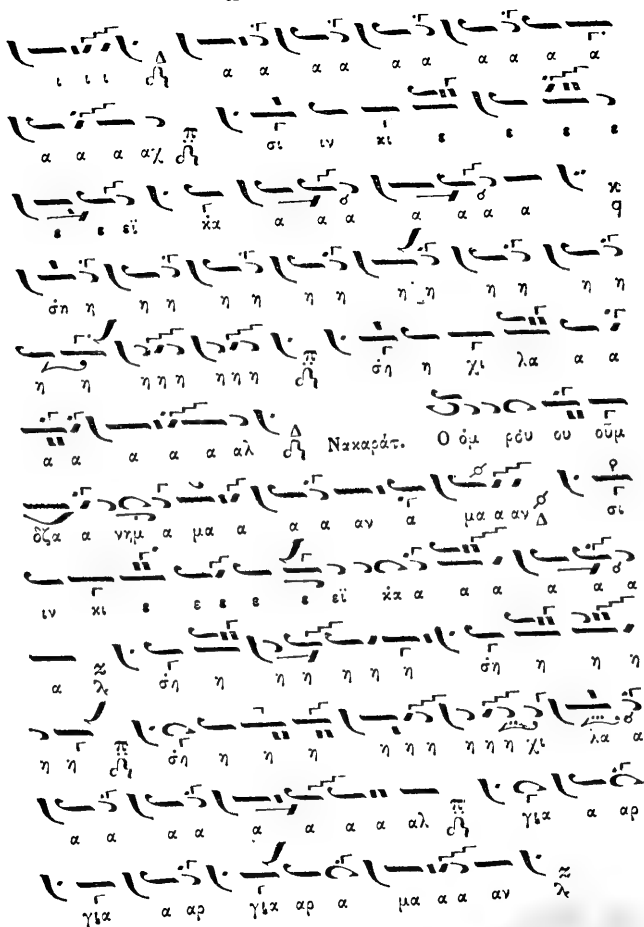 ι ι ι Δ α α α α α α α α α α
α α α αχ π σι ιν κι ε ε ε ε
ε ε εϊ κα α α α α α α α κ q
ση η η η η η η η η η η η η η
η η η η η η η η π ση η χι λα α α
α α α α α αλ Δ Νακαράτ. Ο όμ ρόυ ου ούμ
δζα α νημ α μα α α α αν α μα α αν Δ σι
ιν κι ε ε ε ε ε εϊ κα α α α α α α
α λ ση η η η η η η ση η η η
η η π ση η η η η η η η η η χι λα α
α α α α α α α α αλ π για α αρ
για α αρ για αρ α μα α α αν λ